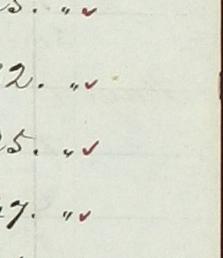 3. " ✓
2. " ✓
25. " ✓
7. " ✓